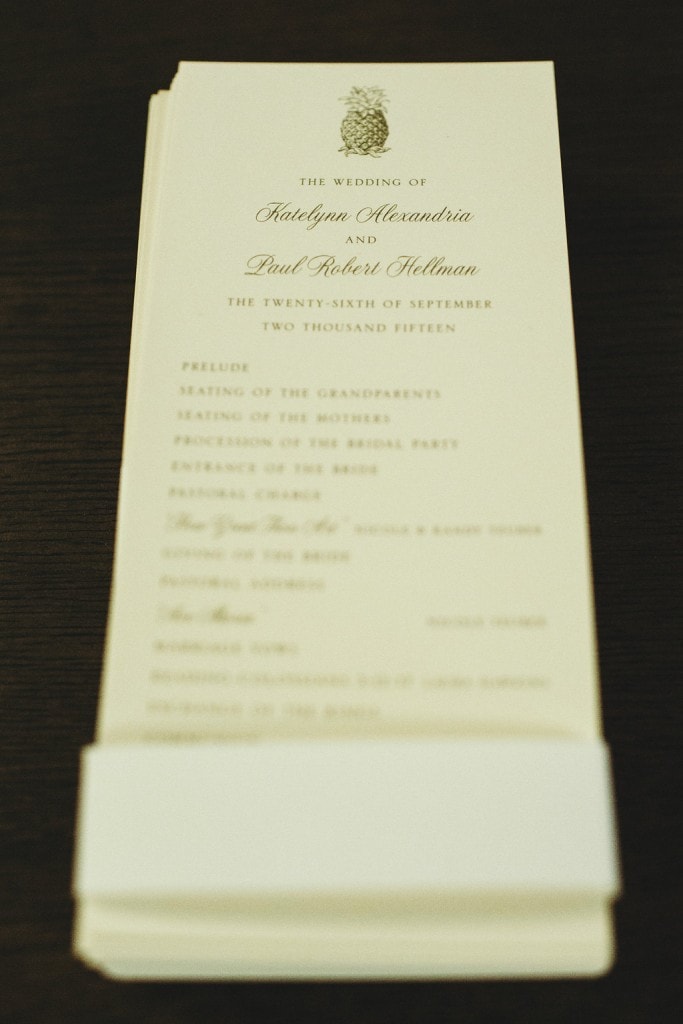 THE WEDDING OF
Katelynn Alexandria
AND
Paul Robert Hellman
THE TWENTY-SIXTH OF SEPTEMBER
TWO THOUSAND FIFTEEN
PRELUDE
SEATING OF THE GRANDPARENTS
SEATING OF THE MOTHERS
PROCESSION OF THE BRIDAL PARTY
ENTRANCE OF THE BRIDE
PASTORAL CHARGE
"How Great Thou Art" NICOLE & RANDY
GIVING OF THE BRIDE
PASTORAL ADDRESS
"Ave Maria" NICOLE
MARRIAGE VOWS
EXCHANGE OF THE RINGS